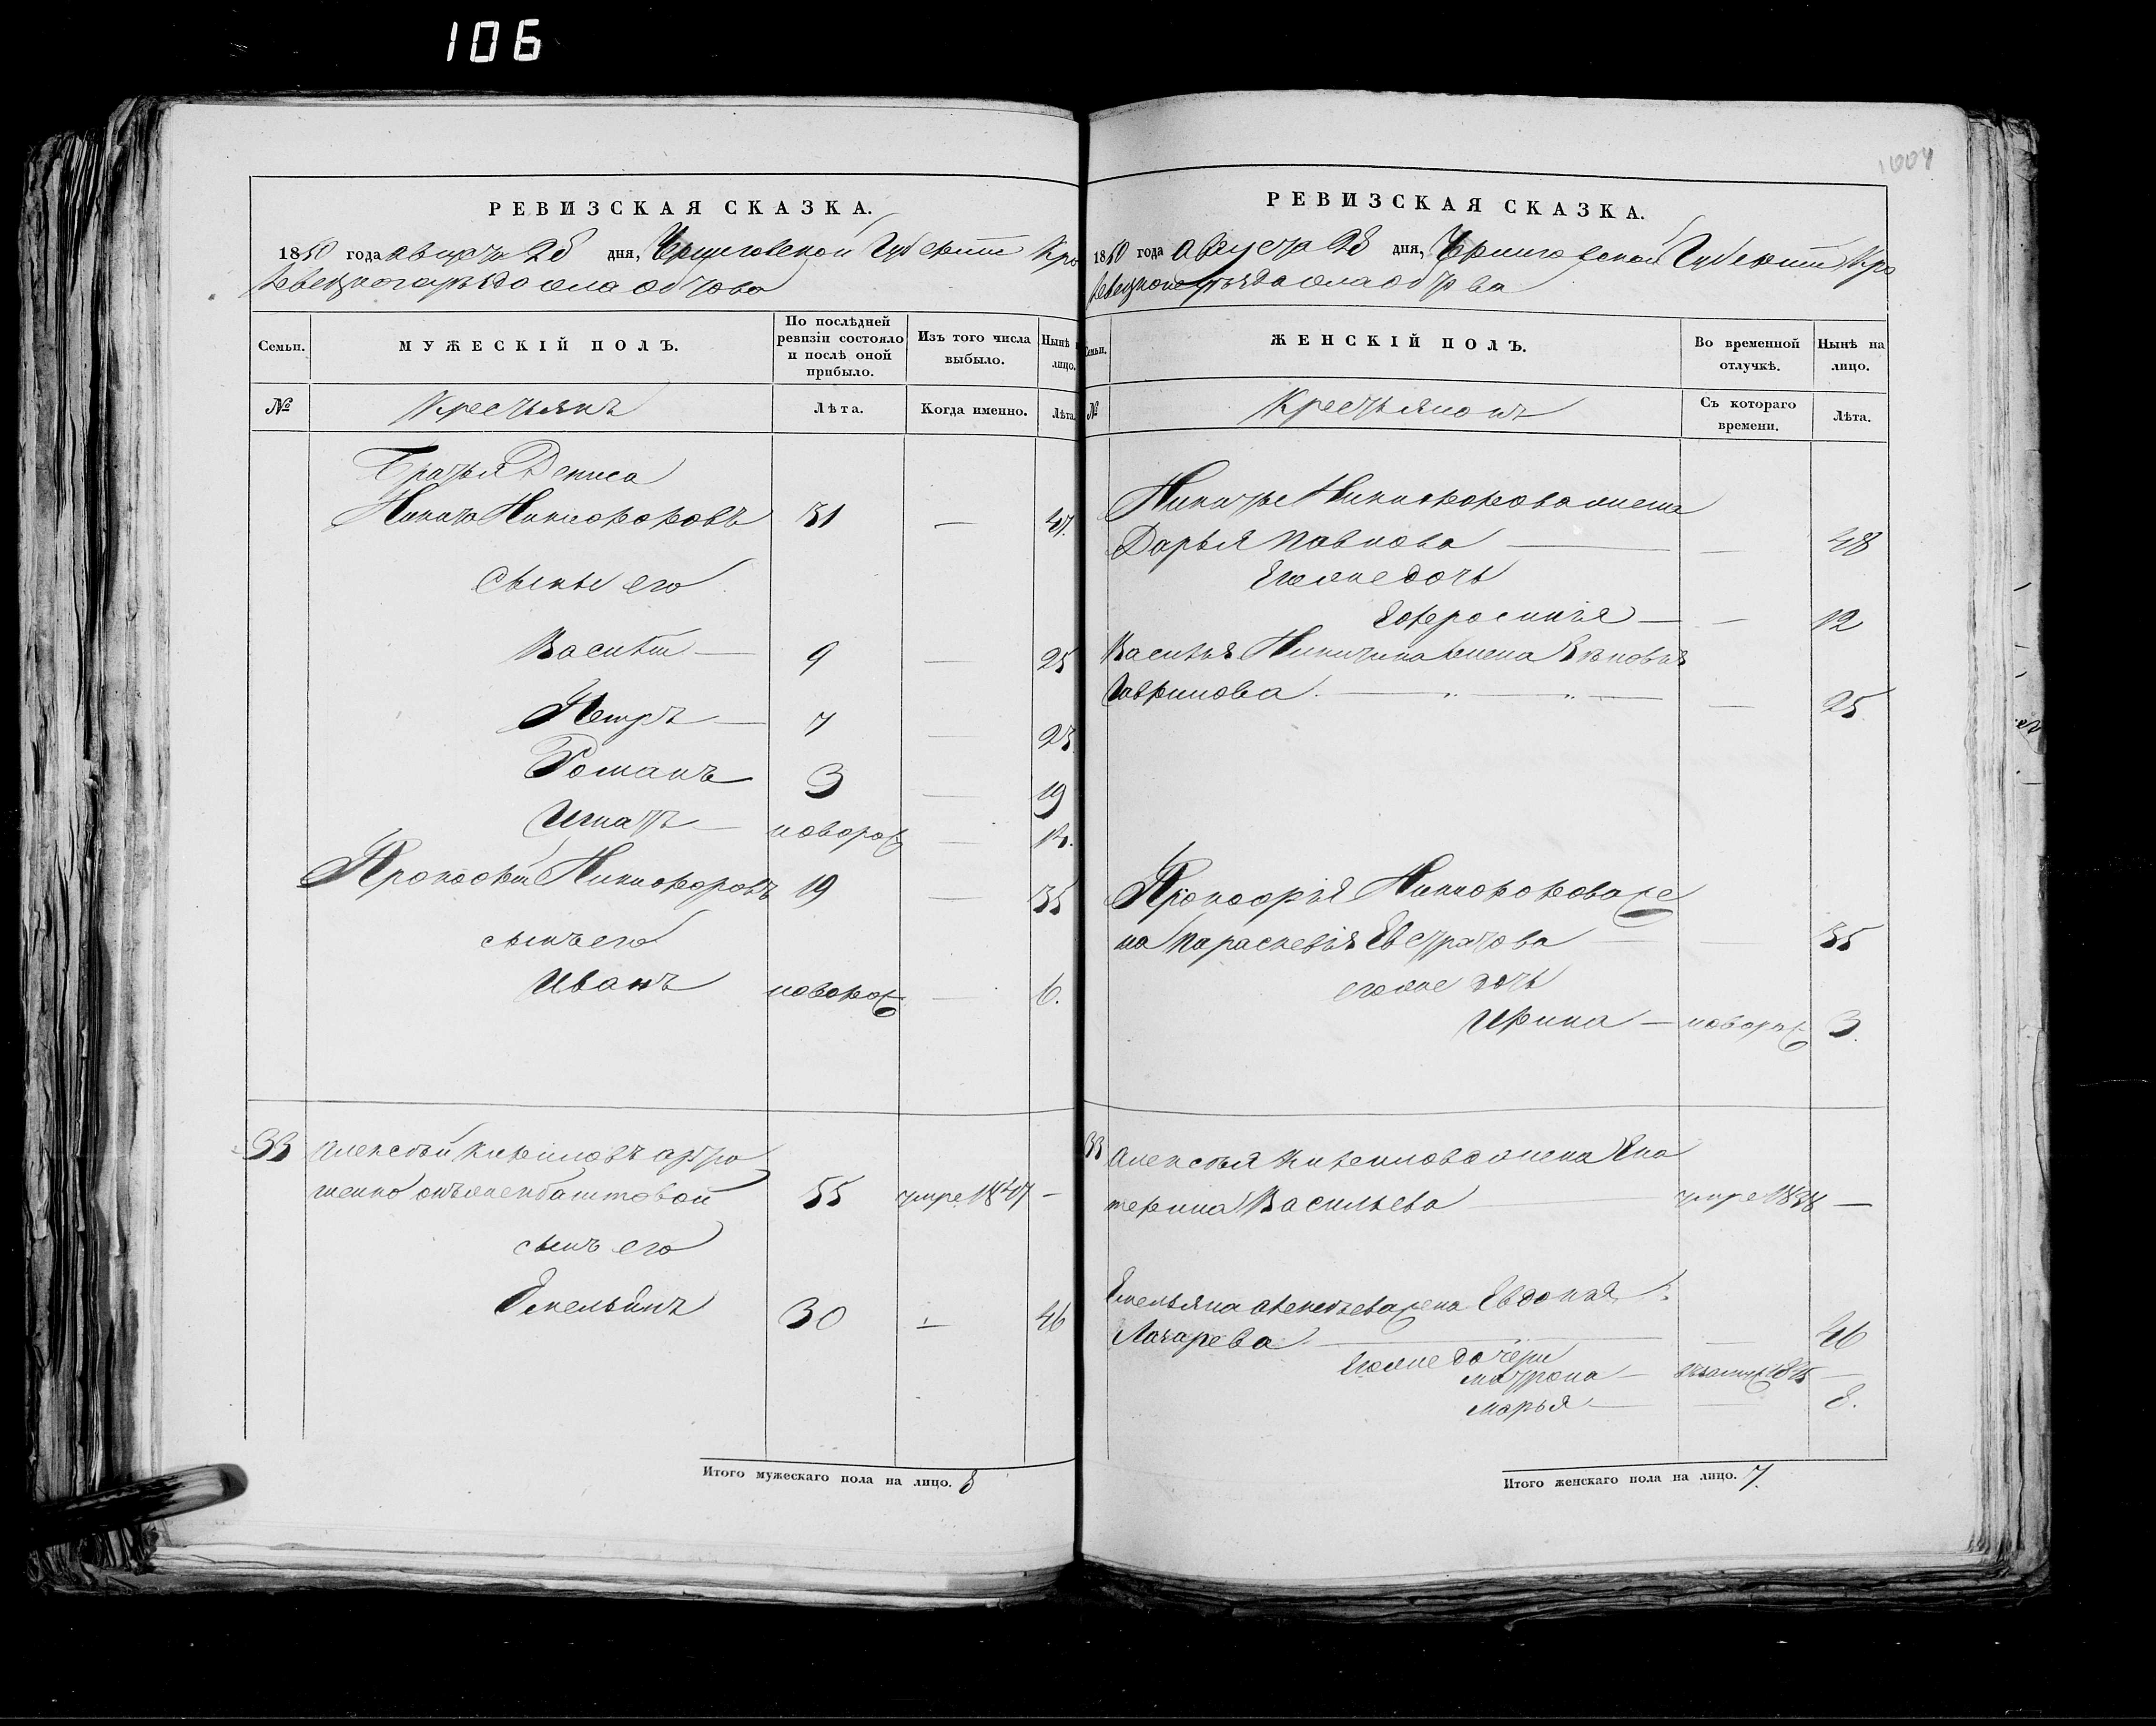 106
1004
РЕВИЗСКАЯ СКАЗКА.
1850 года августа 28 дня, Черниговской Губернии Кро
левецкого уезда села Обтова
Семьи. МУЖЕСКІЙ ПОЛЪ. По послѣдней ревизіи состояло и послѣ оной прибыло. Изъ того числа выбыло. Нынѣ лицо.
№ Крестьянъ Лѣта. Когда именно. Лѣта.
Братья Дениса
Никита Никифоровъ 31 — 47.
Сыны его
Василій — 9 — 25
Петръ — 7 — 23.
Романъ 3 — 19
Игнатъ — новорож
Прокофій Никифоровъ 19 — 35
сынъ его
Иванъ новорож — 6.
33 Алексѣй Кириловъ
онъ же Баштовой 55 умре 1847 —
сынъ его
Емельянъ 30 — 46
Итого мужескаго пола на лицо. 8
РЕВИЗСКАЯ СКАЗКА.
1850 года Августа 28 дня, Черниговской Губернии Кро
левецкого уезда села Обтова
Семьи. ЖЕНСКІЙ ПОЛЪ. Во временной отлучкѣ. Нынѣ на лицо.
№ Крестьянокъ Съ котораго времени. Лѣта.
Никиты Никифорова жена
Дарья Павлова — — 48
Его же дочь
Ефросинія — — 12
Василія Никитина жена
Гаврилова — — 25
Прокофія Никифорова же
на Параскевія Евстратова 35
его же дочь
Ирина — новорож 3.
33 Алексѣя Кирилова жена Ека
терина Васильева умре 1838 —
Емельяна Алексѣева жена Евдокія
Лазарева — — 46
Его же дочери
Матрона —
Марья — — 8.
Итого женскаго пола на лицо. 7.